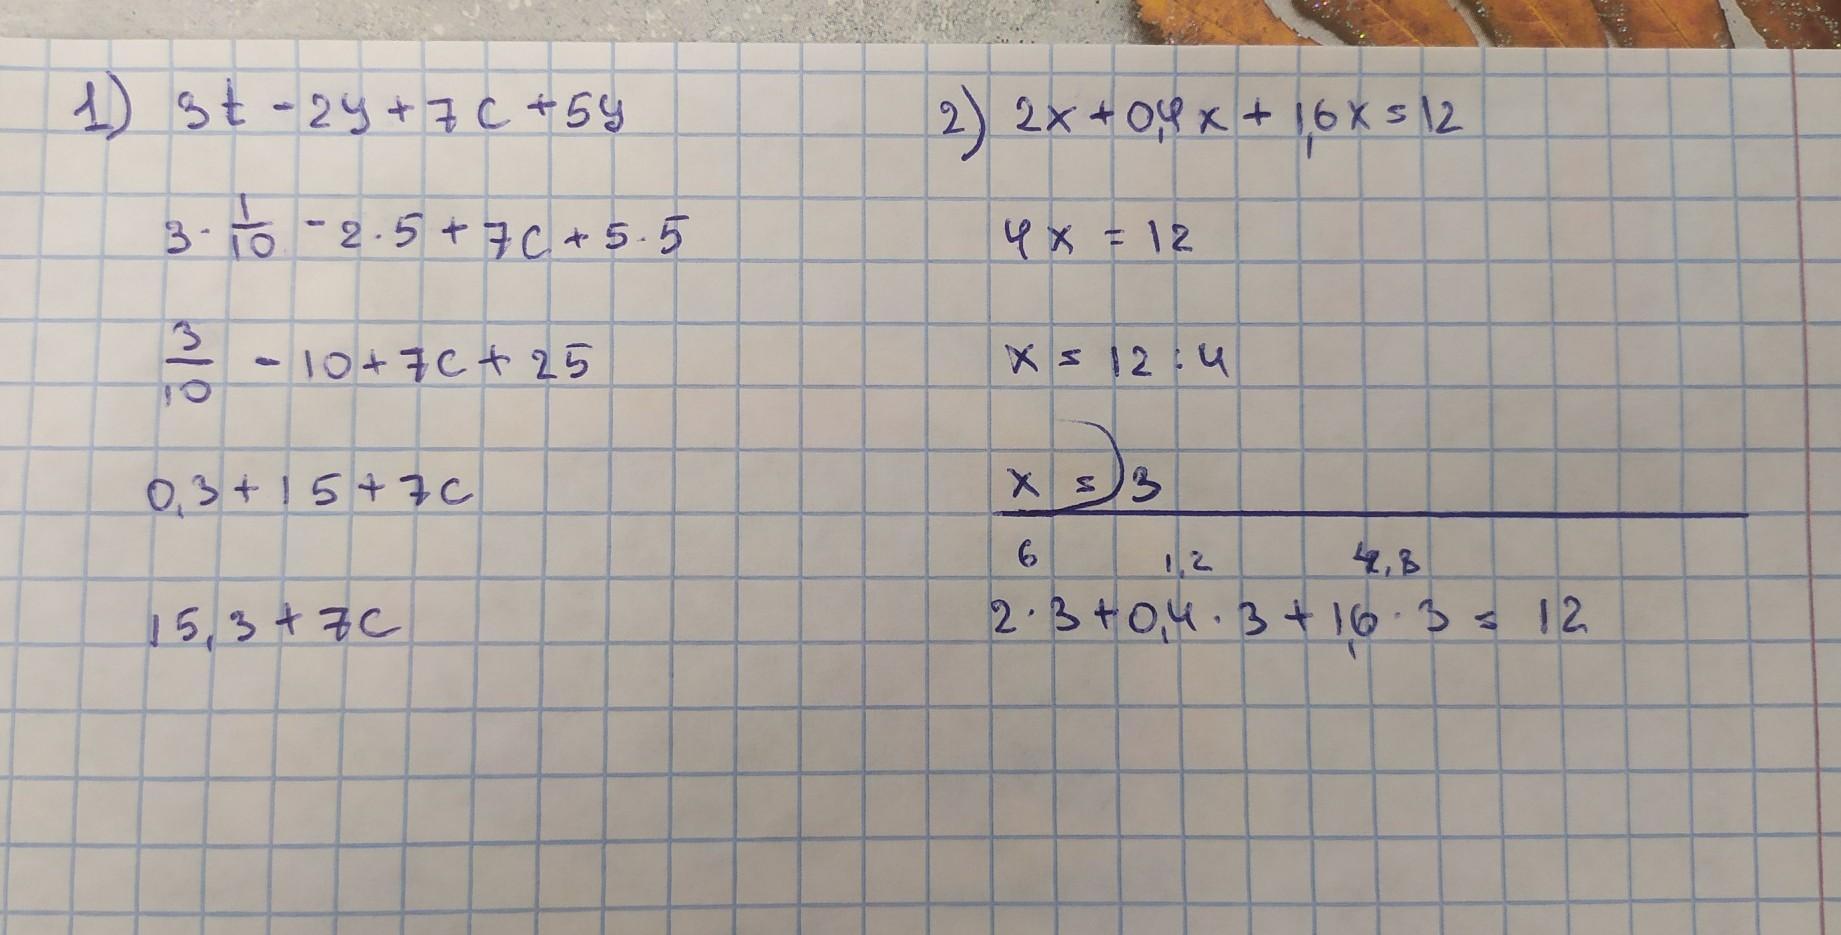 1) 3t - 2y + 7c + 5y
3 · 1/10 - 2 · 5 + 7c + 5 · 5
3/10 - 10 + 7c + 25
0,3 + 15 + 7c
15,3 + 7c
2) 2x + 0,4x + 1,6x = 12
4x = 12
x = 12 : 4
x = 3
6 1,2 4,8
2 · 3 + 0,4 · 3 + 1,6 · 3 = 12